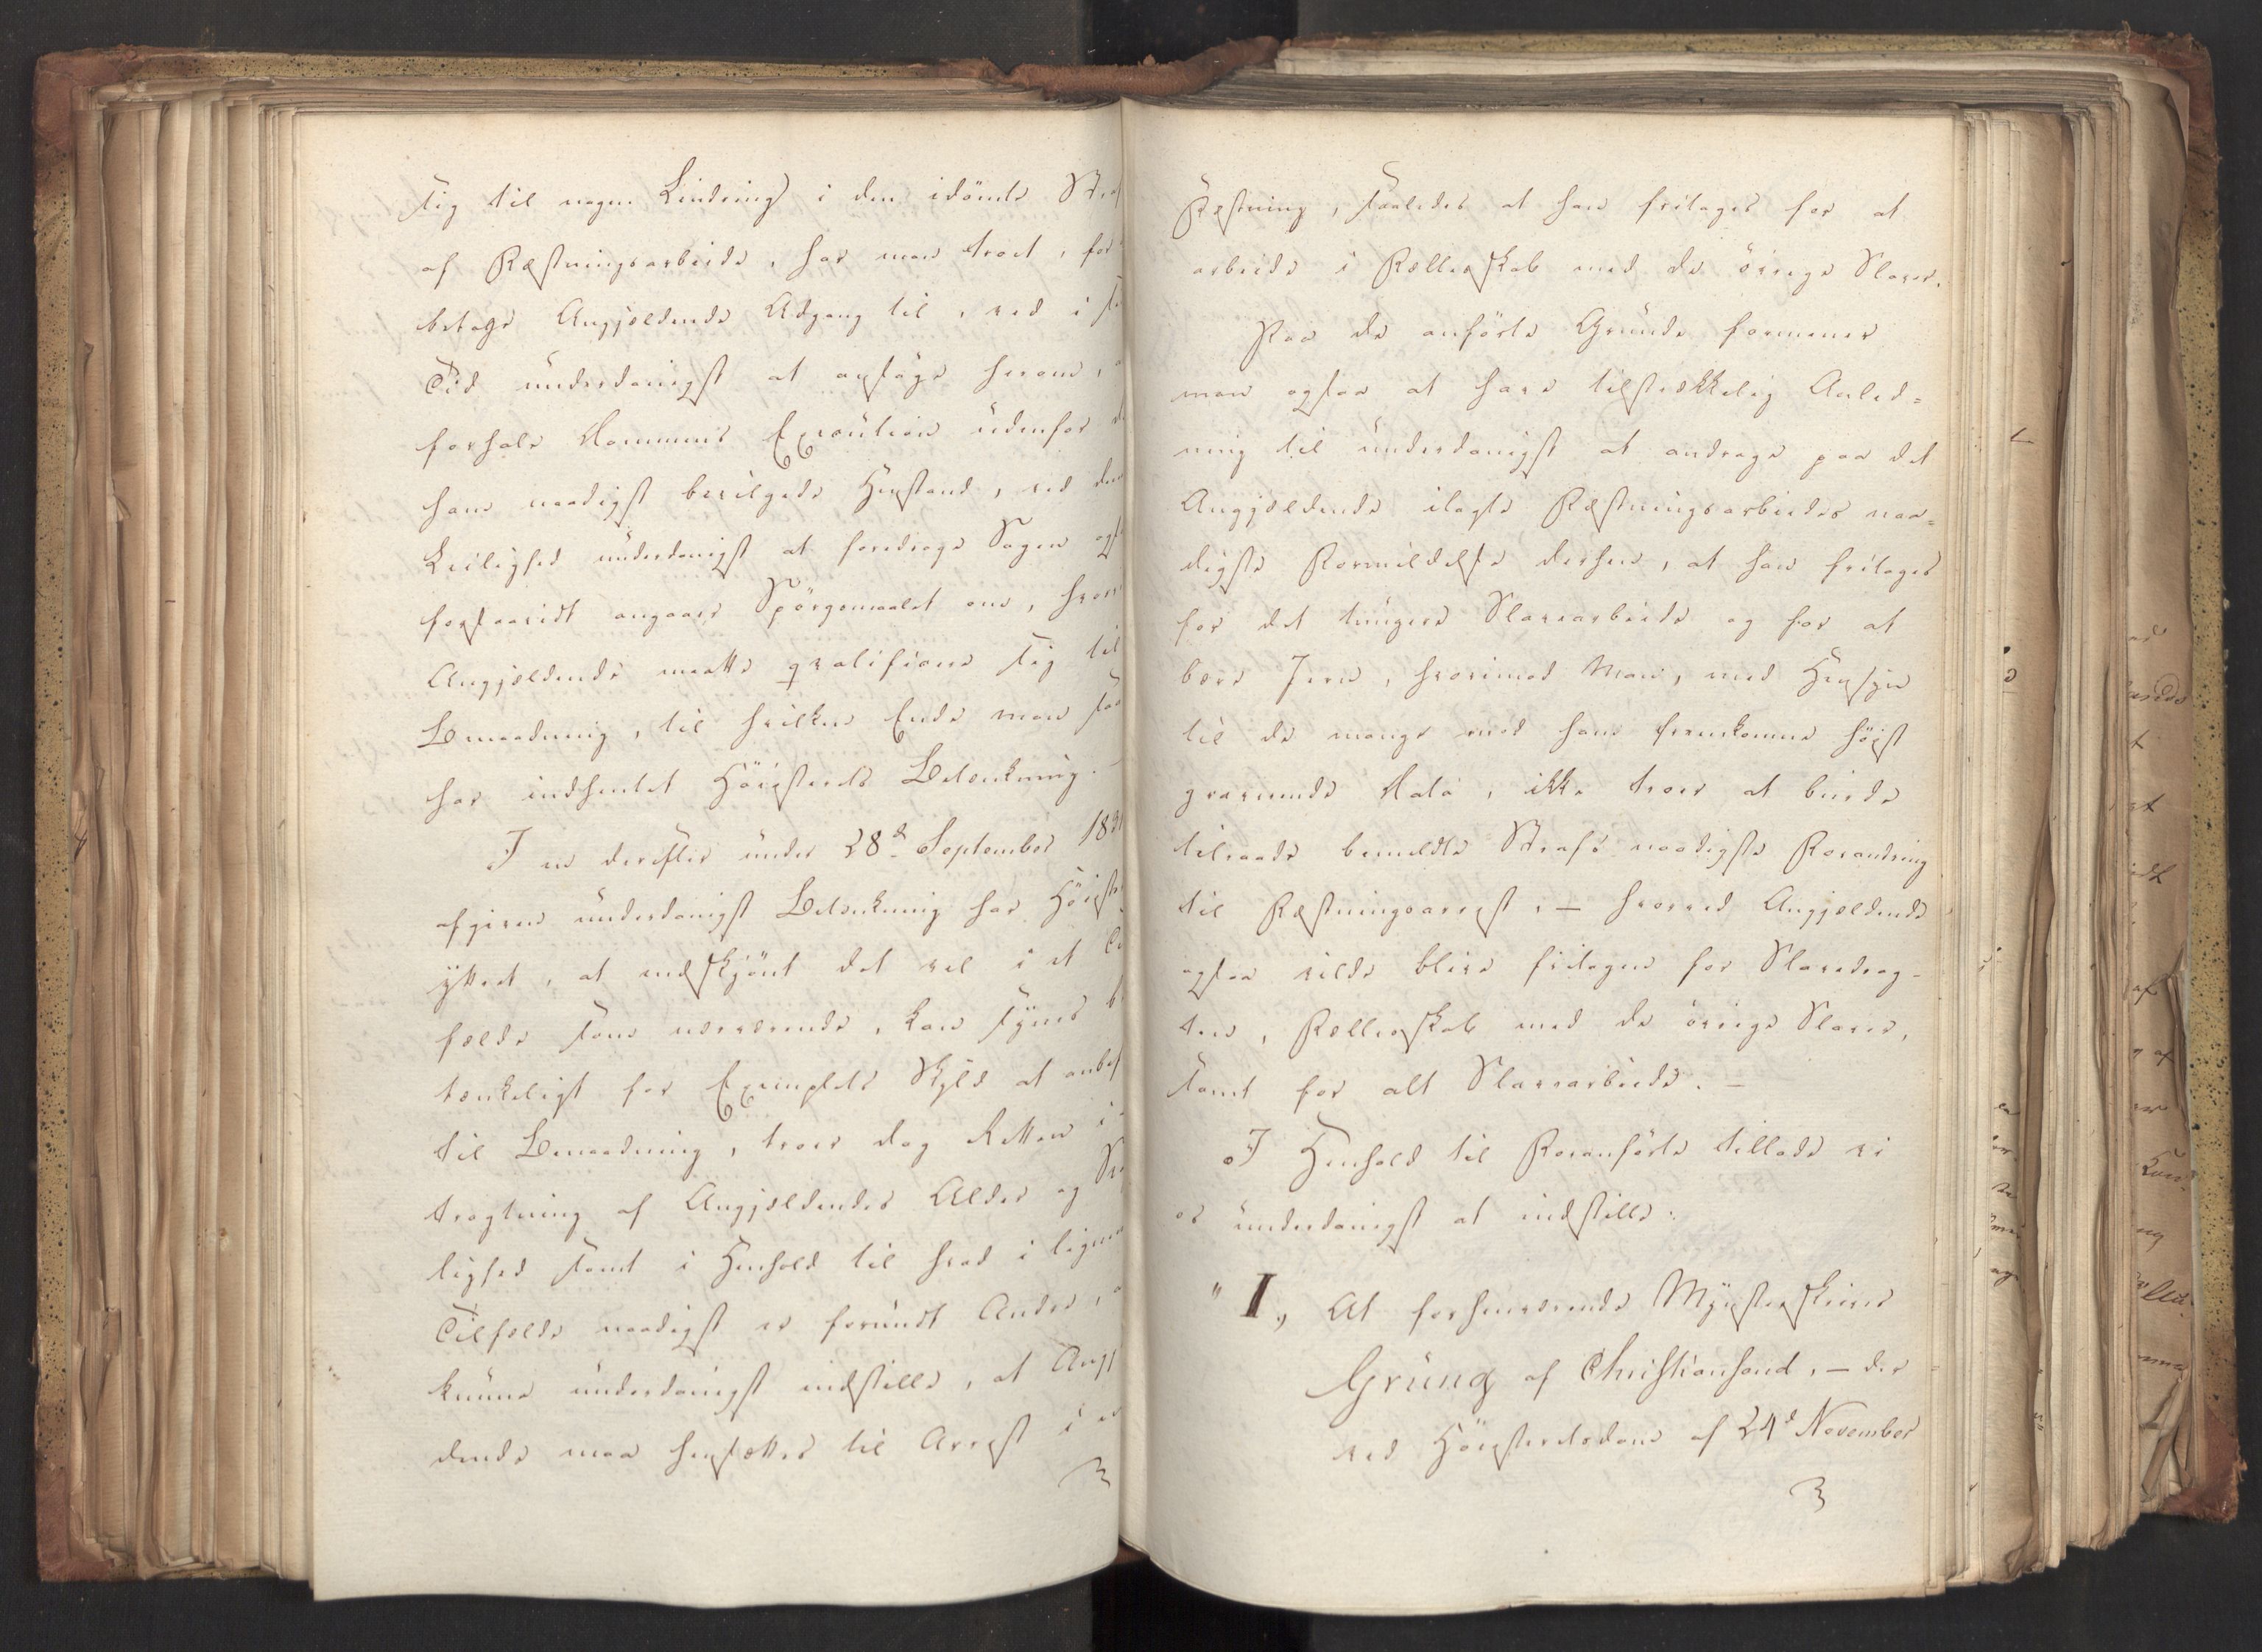 sig til nogen Lindring i den idömte Straf
af Fæstningsarbeide, har man troet, for
betage Angjældende Adgang til, ved i sin
Tid underdanigst at ansøge herom,
forhale Dommens Execution udenfor
ham naadigst bevilgede Henstand, ved denne
Leilighed underdanigst at foredrage Sagen
forsaavidt angaaer Spörgsmaalet om, hvorvidt
Angjældende maatte qvalificere sig til
Benaadning, til hvilken Ende man
har indhentet Höiesterets Betænkning. –
I en derefter under 28d September 1831
afgiven underdanigst Betænkning har Höiesteret
yttret, at endskjönt det vel i et
fælde som nærværende, kan synes
tænkeligt for Exemplets Skyld at
til Benaadning, troer dog Retten i
tragtning af Angjældendes Alder og
lighed samt i Henhold til hvad i lignende
Tilfælde naadigst er forundt Andre,
kunne underdanigst indstille, at
dende maa hensættes til Arrest i en
Fæstning, saaledes at han fritages for at
arbeide i Fælledsskab med de övrige Slaver.
Paa de anförte Grunde formener
man ogsaa at have tilstrækkelig Anled=
ning til underdanigst at andrage paa det
Angjældende ilagte Fæstningsarbeides naa=
digste Formildelse derhen, at han fritages
for det tungere Slavearbeide og for at
bære Jern, hvorimod Man, med Hensyn
til de mange mod ham fremkomne höist
graverende Data, ikke troer at burde
tilraade bemeldte Strafs naadigste Forandring
til Fæstningsarrest, – hvorved Angjældende
ogsaa vilde blive fritagen for Slavedrag-
ten, Fælledsskab med de övrige Slaver,
samt for alt Slavearbeide. –
I Henhold til Foranförte tillade vi
os underdanigst at indstille:
" I, At forhenværende Mynsterskriver
Grüng af Christiansand, – der
ved Höiesteretsdom af 24d November